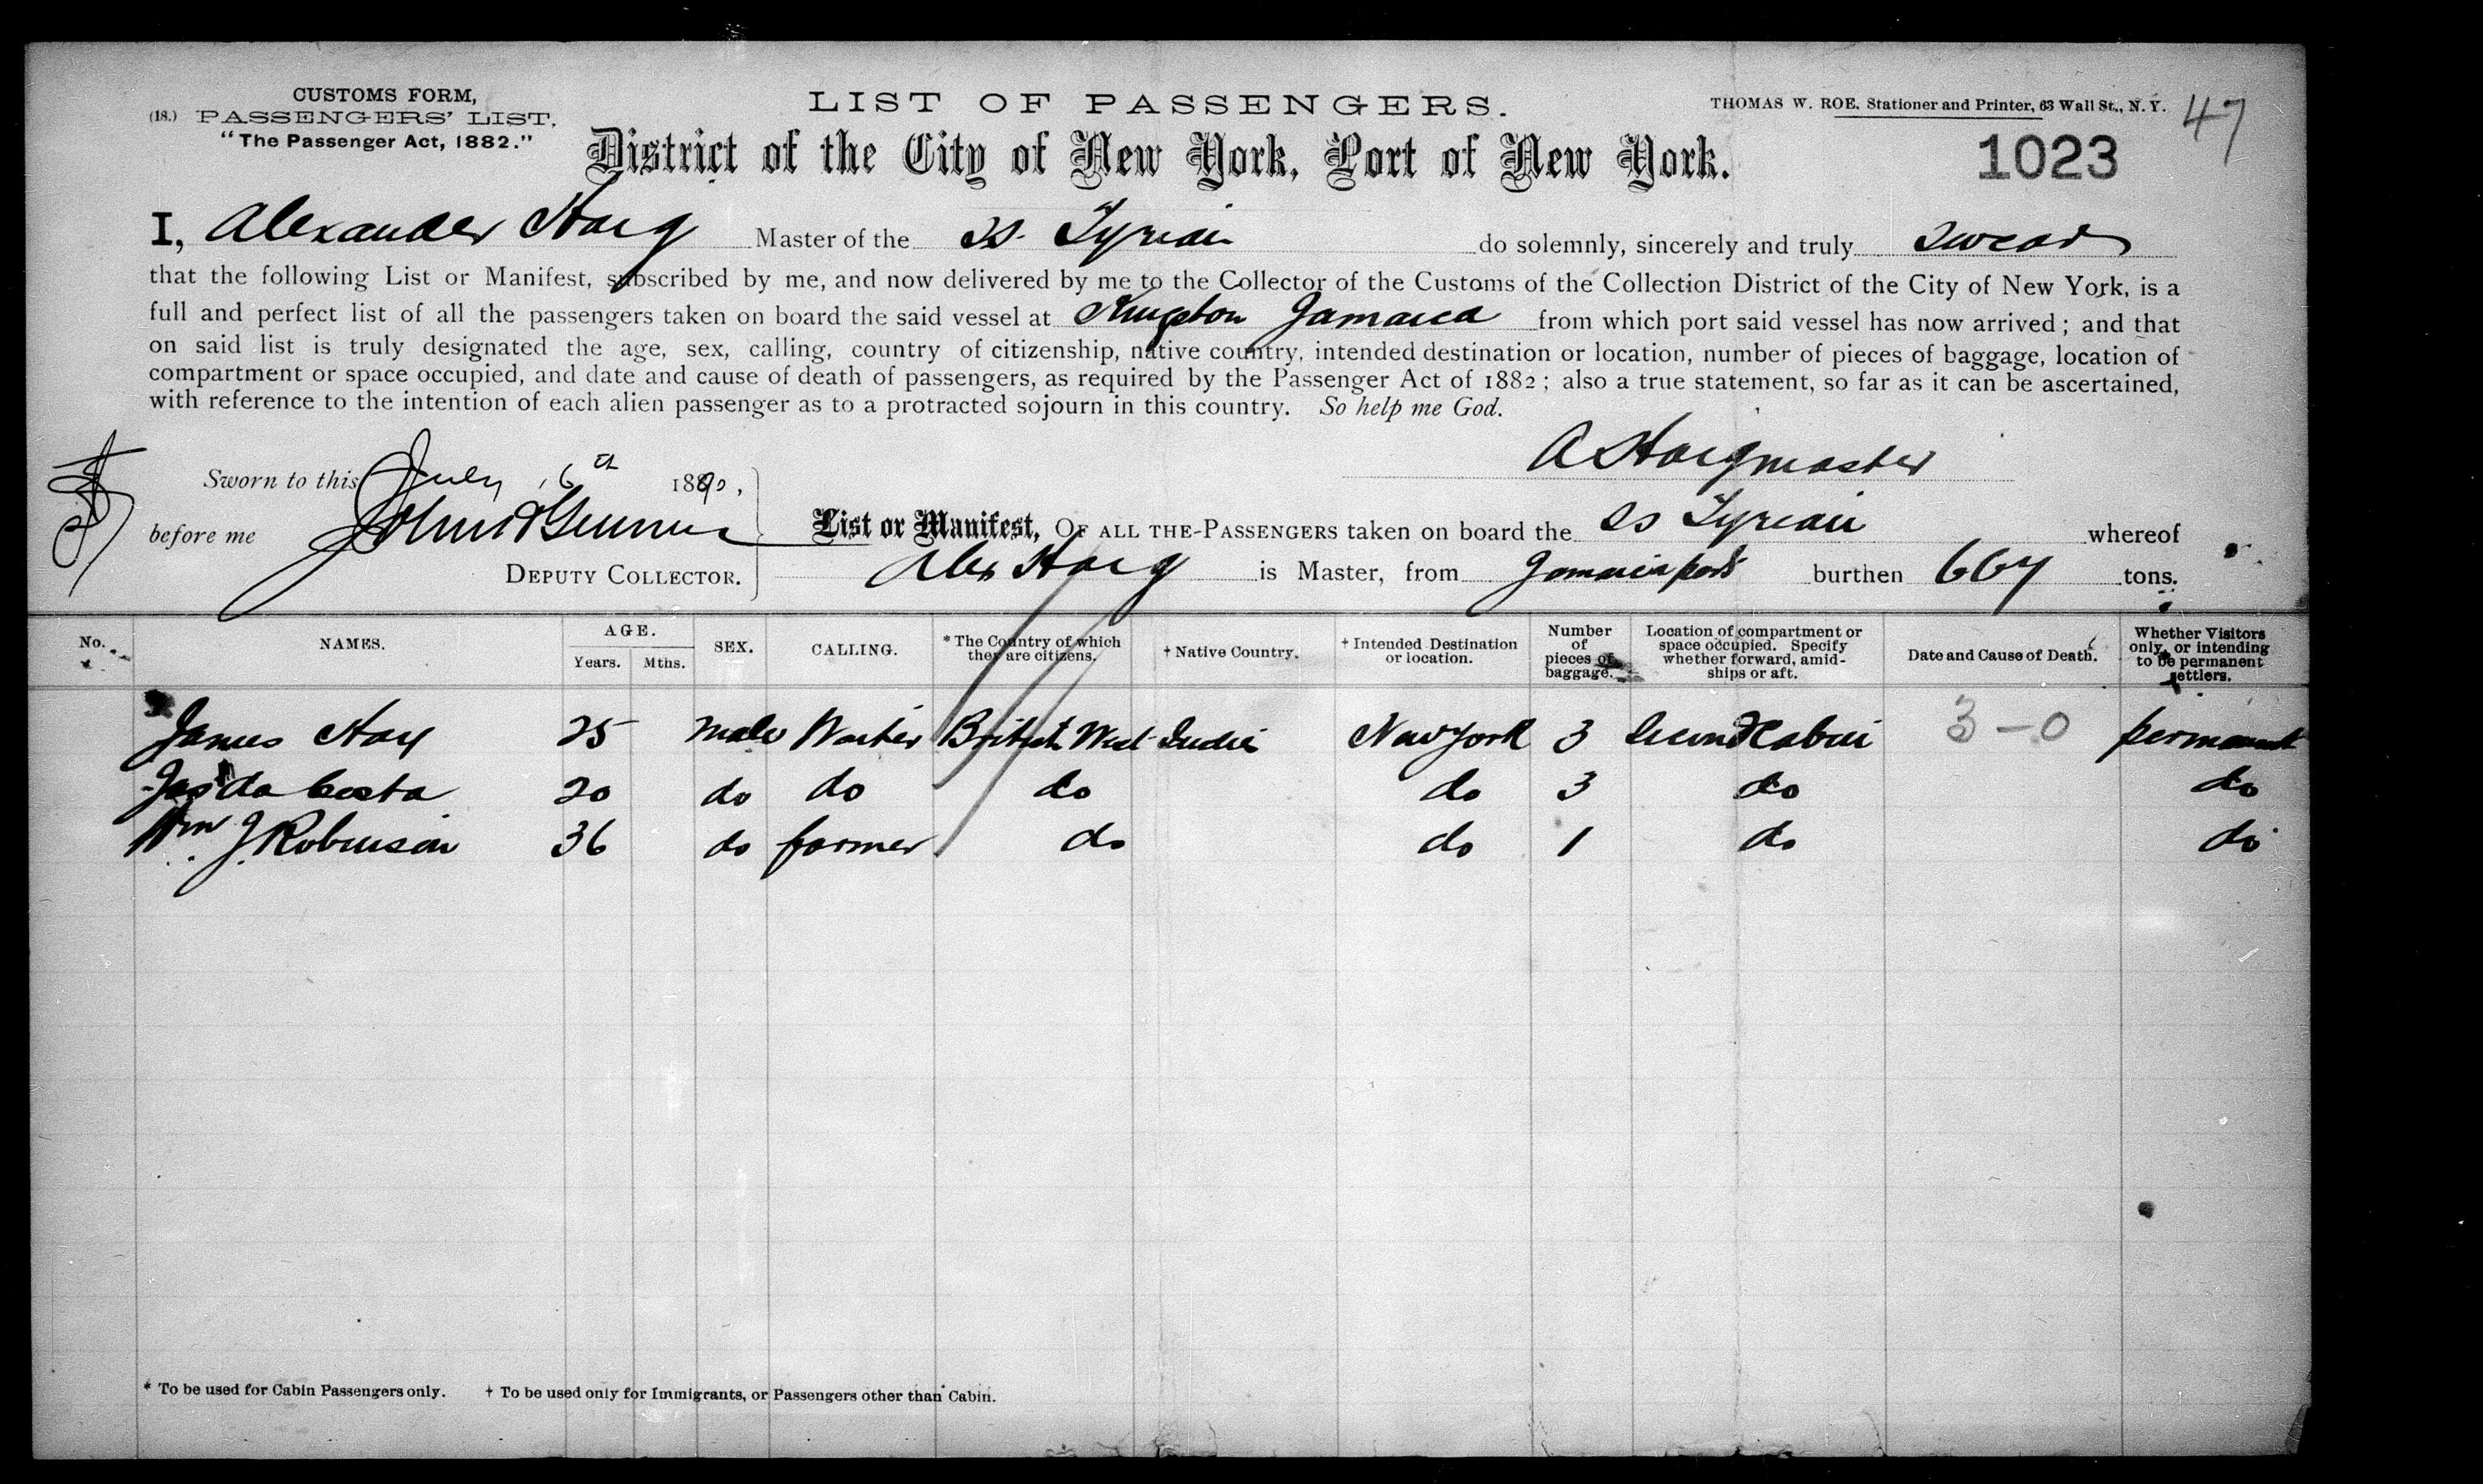 CUSTOMS FORM,
(18.) PASSENGERS' LIST.
"The Passenger Act, 1882."
LIST OF PASSENGERS.
THOMAS W. ROE, Stationer and Printer, 63 Wall St., N. Y.
47
District of the City of New York, Port of New York.
1023
I, Alexander Hoeg Master of the SS. Tyrian do solemnly, sincerely and truly swear
that the following List or Manifest, subscribed by me, and now delivered by me to the Collector of the Customs of the Collection District of the City of New York, is a
full and perfect list of all the passengers taken on board the said vessel at Kingston Jamaica from which port said vessel has now arrived; and that
on said list is truly designated the age, sex, calling, country of citizenship, native country, intended destination or location, number of pieces of baggage, location of
compartment or space occupied, and date and cause of death of passengers, as required by the Passenger Act of 1882; also a true statement, so far as it can be ascertained,
with reference to the intention of each alien passenger as to a protracted sojourn in this country. So help me God.
A Hoeg master
Sworn to this July 16th 1890,
before me John
DEPUTY COLLECTOR.
List or Manifest, OF ALL THE PASSENGERS taken on board the SS Tyrian whereof
Alex Hoeg is Master, from Jamaica ports burthen 664 tons.
No. NAMES. AGE. Years. Mths. SEX. CALLING. * The Country of which they are citizens. † Native Country. † Intended Destination or location. Number of pieces of baggage. Location of compartment or space occupied. Specify whether forward, amidships or aft. Date and Cause of Death. Whether Visitors only, or intending to be permanent settlers.
James Hay 25 male Waiter British West Indies New York 3 Second Cabin 3-0 permanent
Jas da Costa 20 do do do do 3 do do
Wm J Robinson 36 do farmer do do 1 do do
* To be used for Cabin Passengers only. † To be used only for Immigrants, or Passengers other than Cabin.